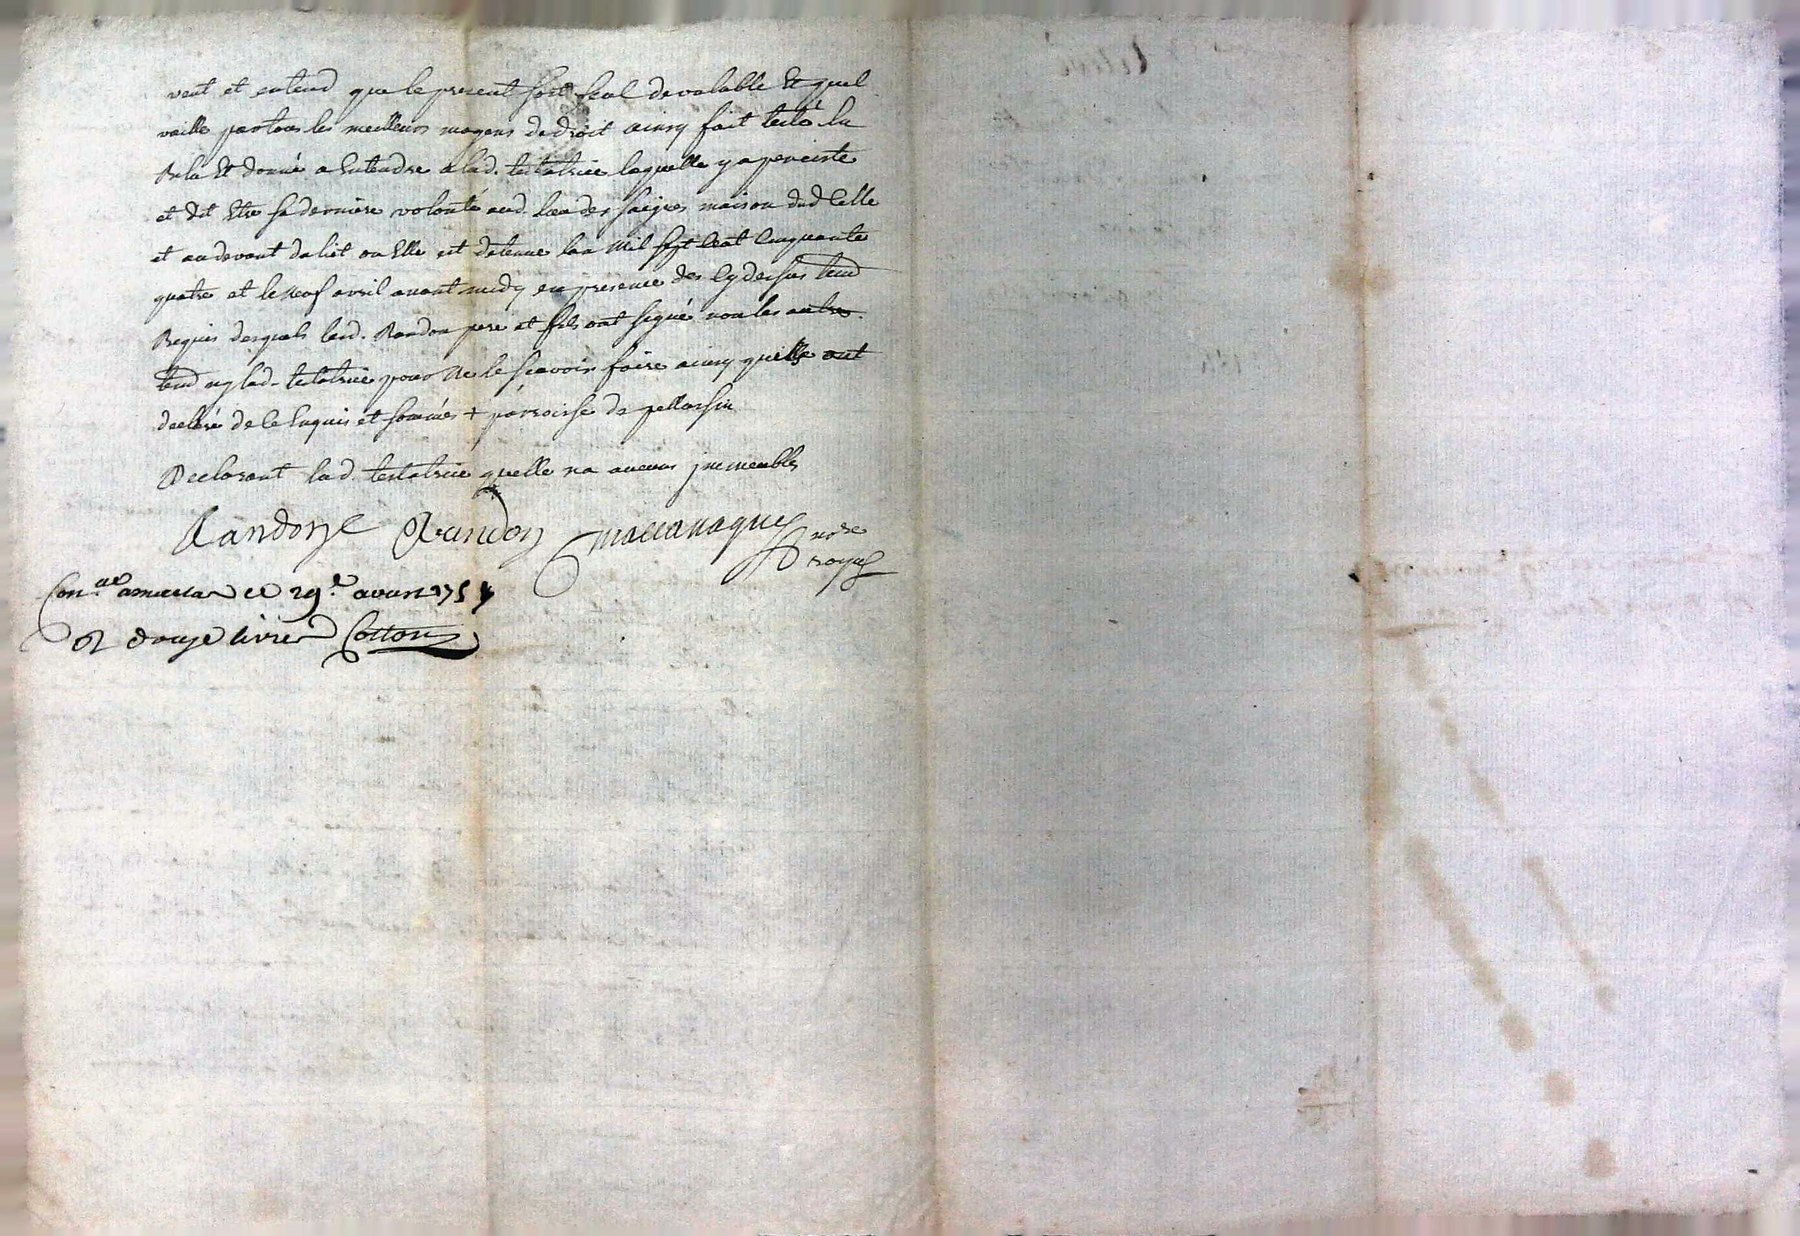 veut et entend que le present soit seul de valable Et quel
vaille par tous les meilleurs moyens de droit ainsy fait testé lu
Relu Et donné a Entendre a lad. testatrice laquelle y a perciste
et dit Etre sa derniere volonté aud. lieu des maison dud Celle
et au devant du lict ou Elle est detenue lan Mil sept Cent Cinquante
quatre et le neuf avril avant midy en presence des Cydessus temd
Requis desquels led. Randon pere et fils ont signé non les autres
temd ny lad. testatrice pour ne le scavoir faire ainsy quils ont
declaré de ce Enquis et sommés + parroisse de
Declarant lad. testatrice quelle na aucuns jmmeubles
Randon Randon nore
royal
Con.lé le 29.e avril 1754
R douze livres Cotton